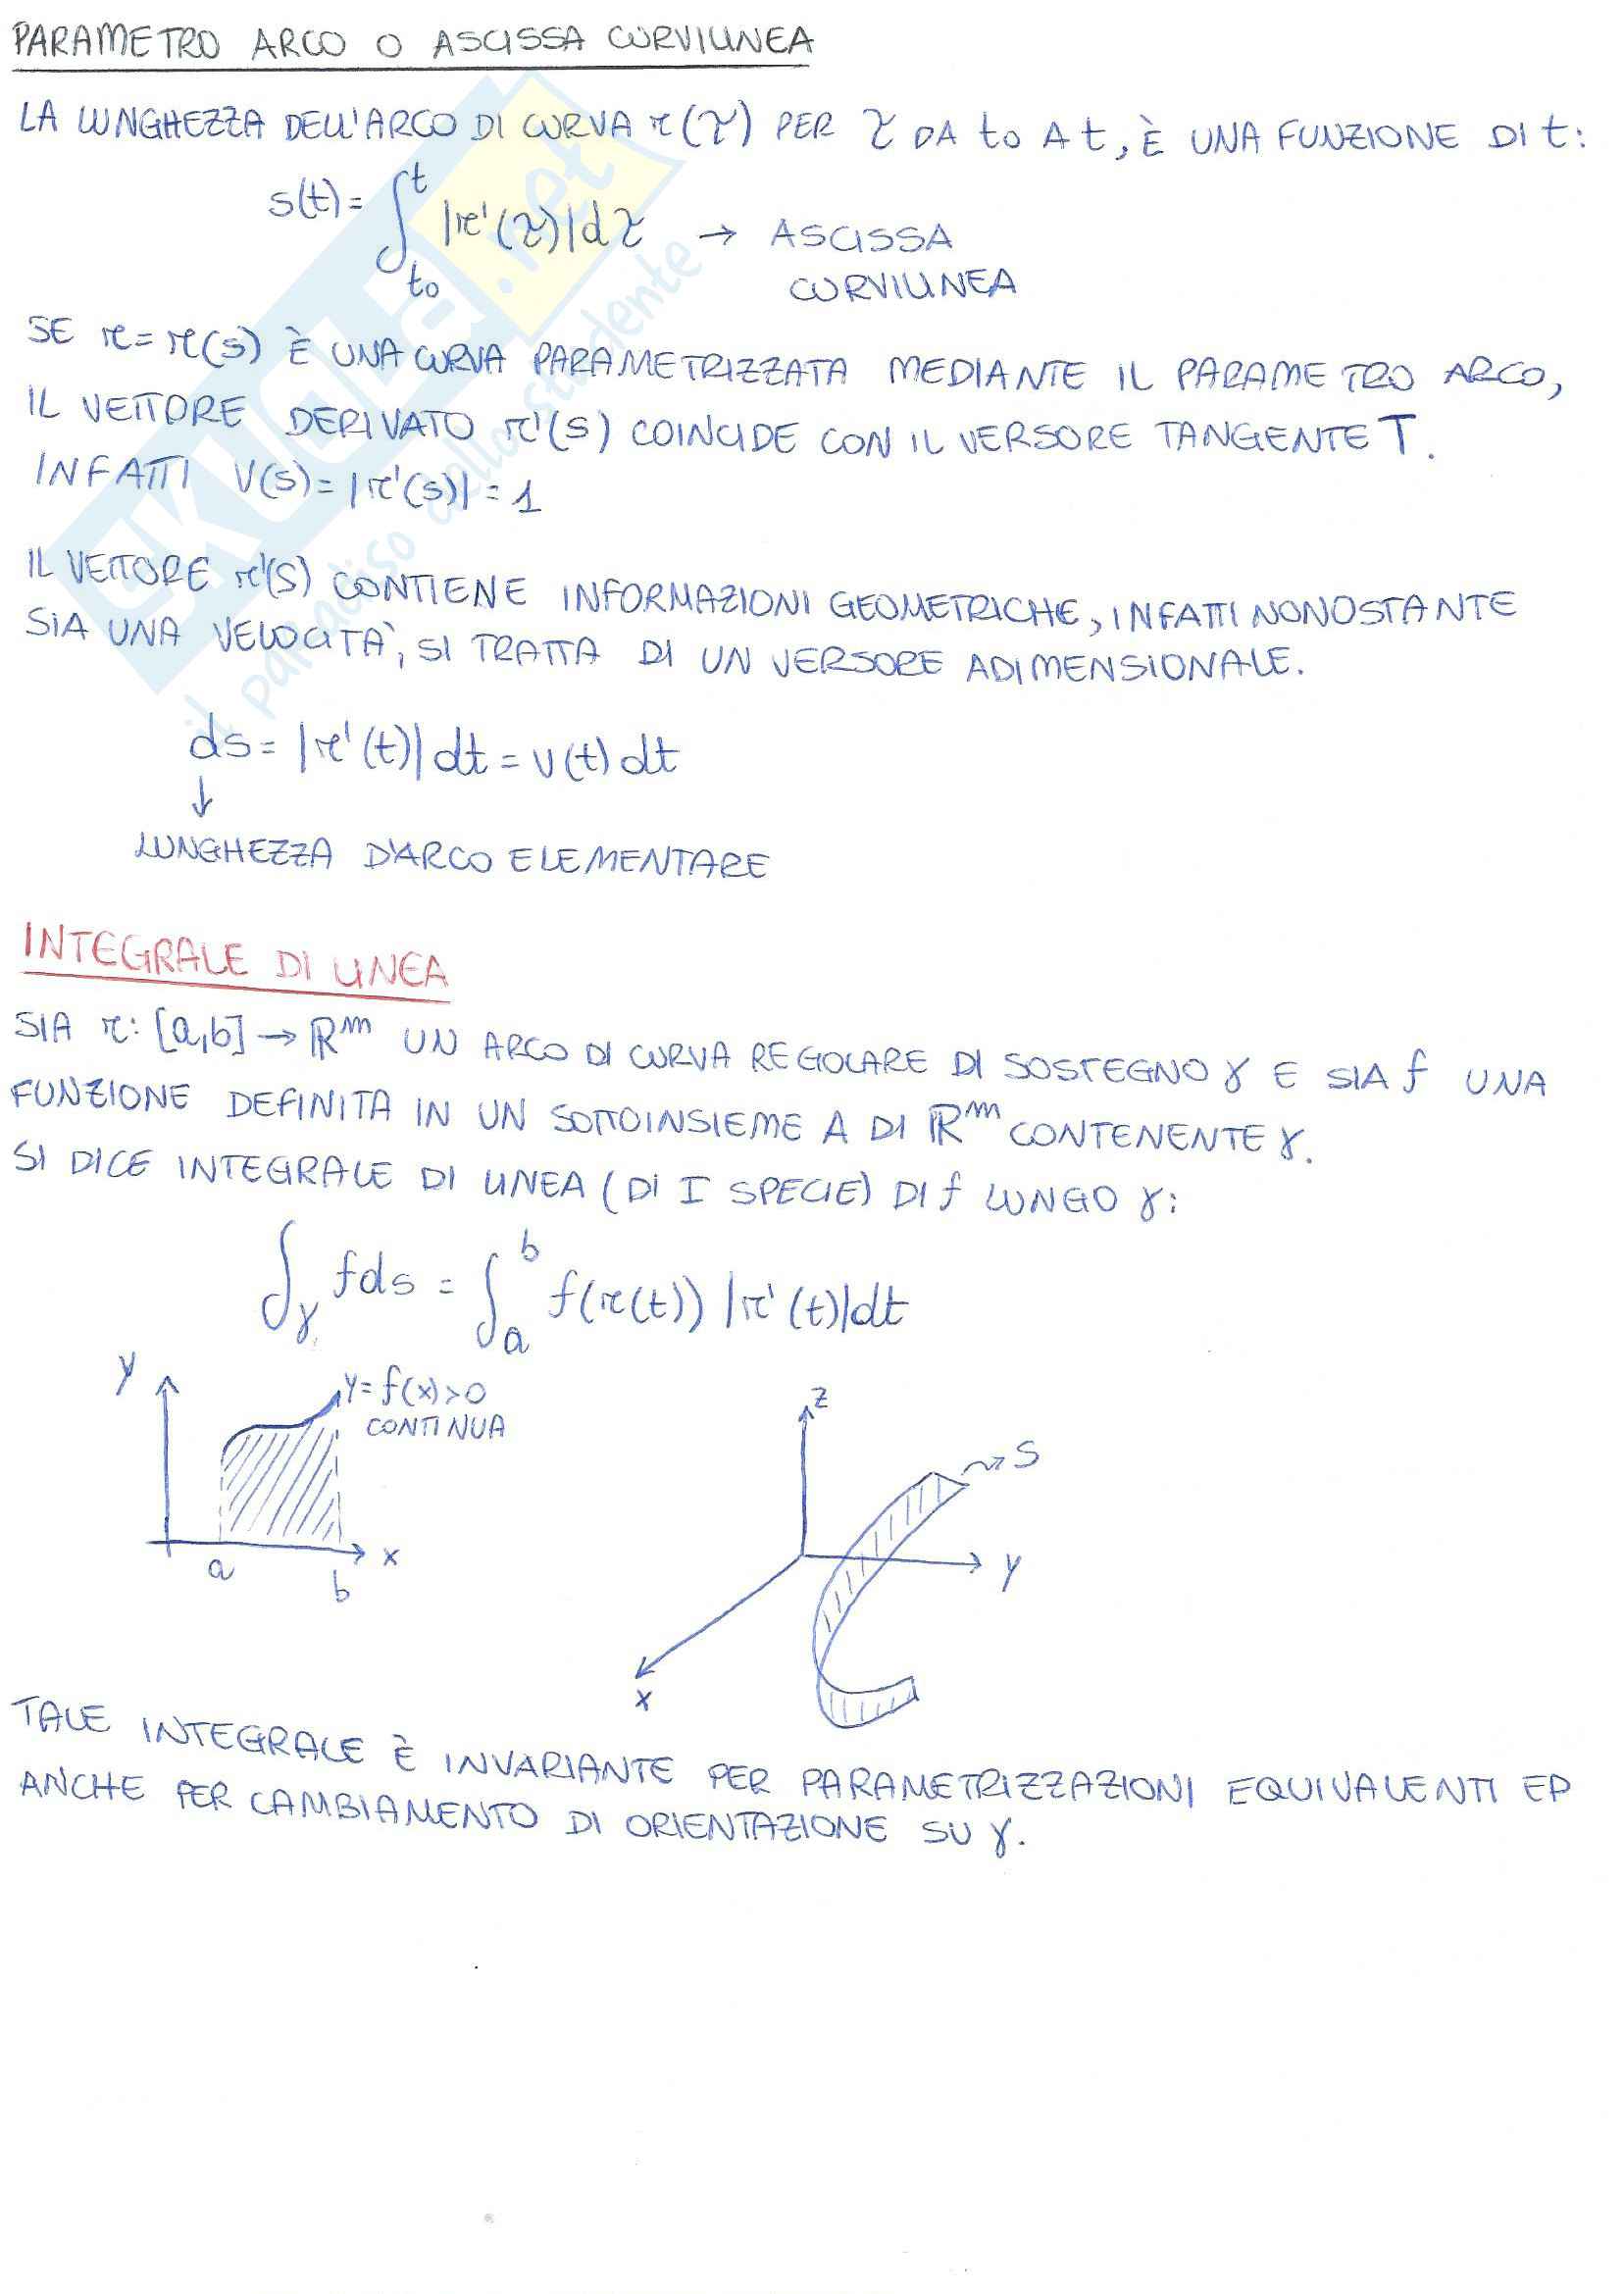 PARAMETRO ARCO O ASCISSA CURVILINEA
LA LUNGHEZZA DELL'ARCO DI CURVA r(τ) PER τ DA t₀ A t, È UNA FUNZIONE DI t:
s(t) = ∫_{t₀}^{t} |r'(τ)|dτ → ASCISSA
CURVILINEA
SE r = r(s) È UNA CURVA PARAMETRIZZATA MEDIANTE IL PARAMETRO ARCO,
IL VETTORE DERIVATO r'(s) COINCIDE CON IL VERSORE TANGENTE T.
INFATTI V(s) = |r'(s)| = 1
IL VETTORE r'(s) CONTIENE INFORMAZIONI GEOMETRICHE, INFATTI NONOSTANTE
SIA UNA VELOCITÀ, SI TRATTA DI UN VERSORE ADIMENSIONALE.
ds = |r'(t)| dt = v(t) dt
↓
LUNGHEZZA D'ARCO ELEMENTARE
INTEGRALE DI LINEA
SIA r: [a,b] → ℝᵐ UN ARCO DI CURVA REGOLARE DI SOSTEGNO γ E SIA f UNA
FUNZIONE DEFINITA IN UN SOTTOINSIEME A DI ℝᵐ CONTENENTE γ.
SI DICE INTEGRALE DI LINEA (DI I SPECIE) DI f LUNGO γ:
∫_γ f ds = ∫_a^b f(r(t)) |r'(t)|dt
y
y = f(x) > 0
CONTINUA
a
b
x
z
S
y
x
TALE INTEGRALE È INVARIANTE PER PARAMETRIZZAZIONI EQUIVALENTI ED
ANCHE PER CAMBIAMENTO DI ORIENTAZIONE SU γ.
SKUOLA.net
il paradiso dello studente